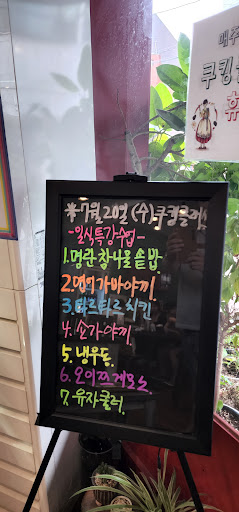 매주
쿠킹
휴
* 7월 20일 (수) 쿠킹클래스
-일식특강수업-
1. 명란 참나물 솥밥
2. 멘치가바야끼
3. 타르타르 치킨
4. 쇼가야끼
5. 냉우동.
6. 오이쯔케모노
7. 유자쿨러.